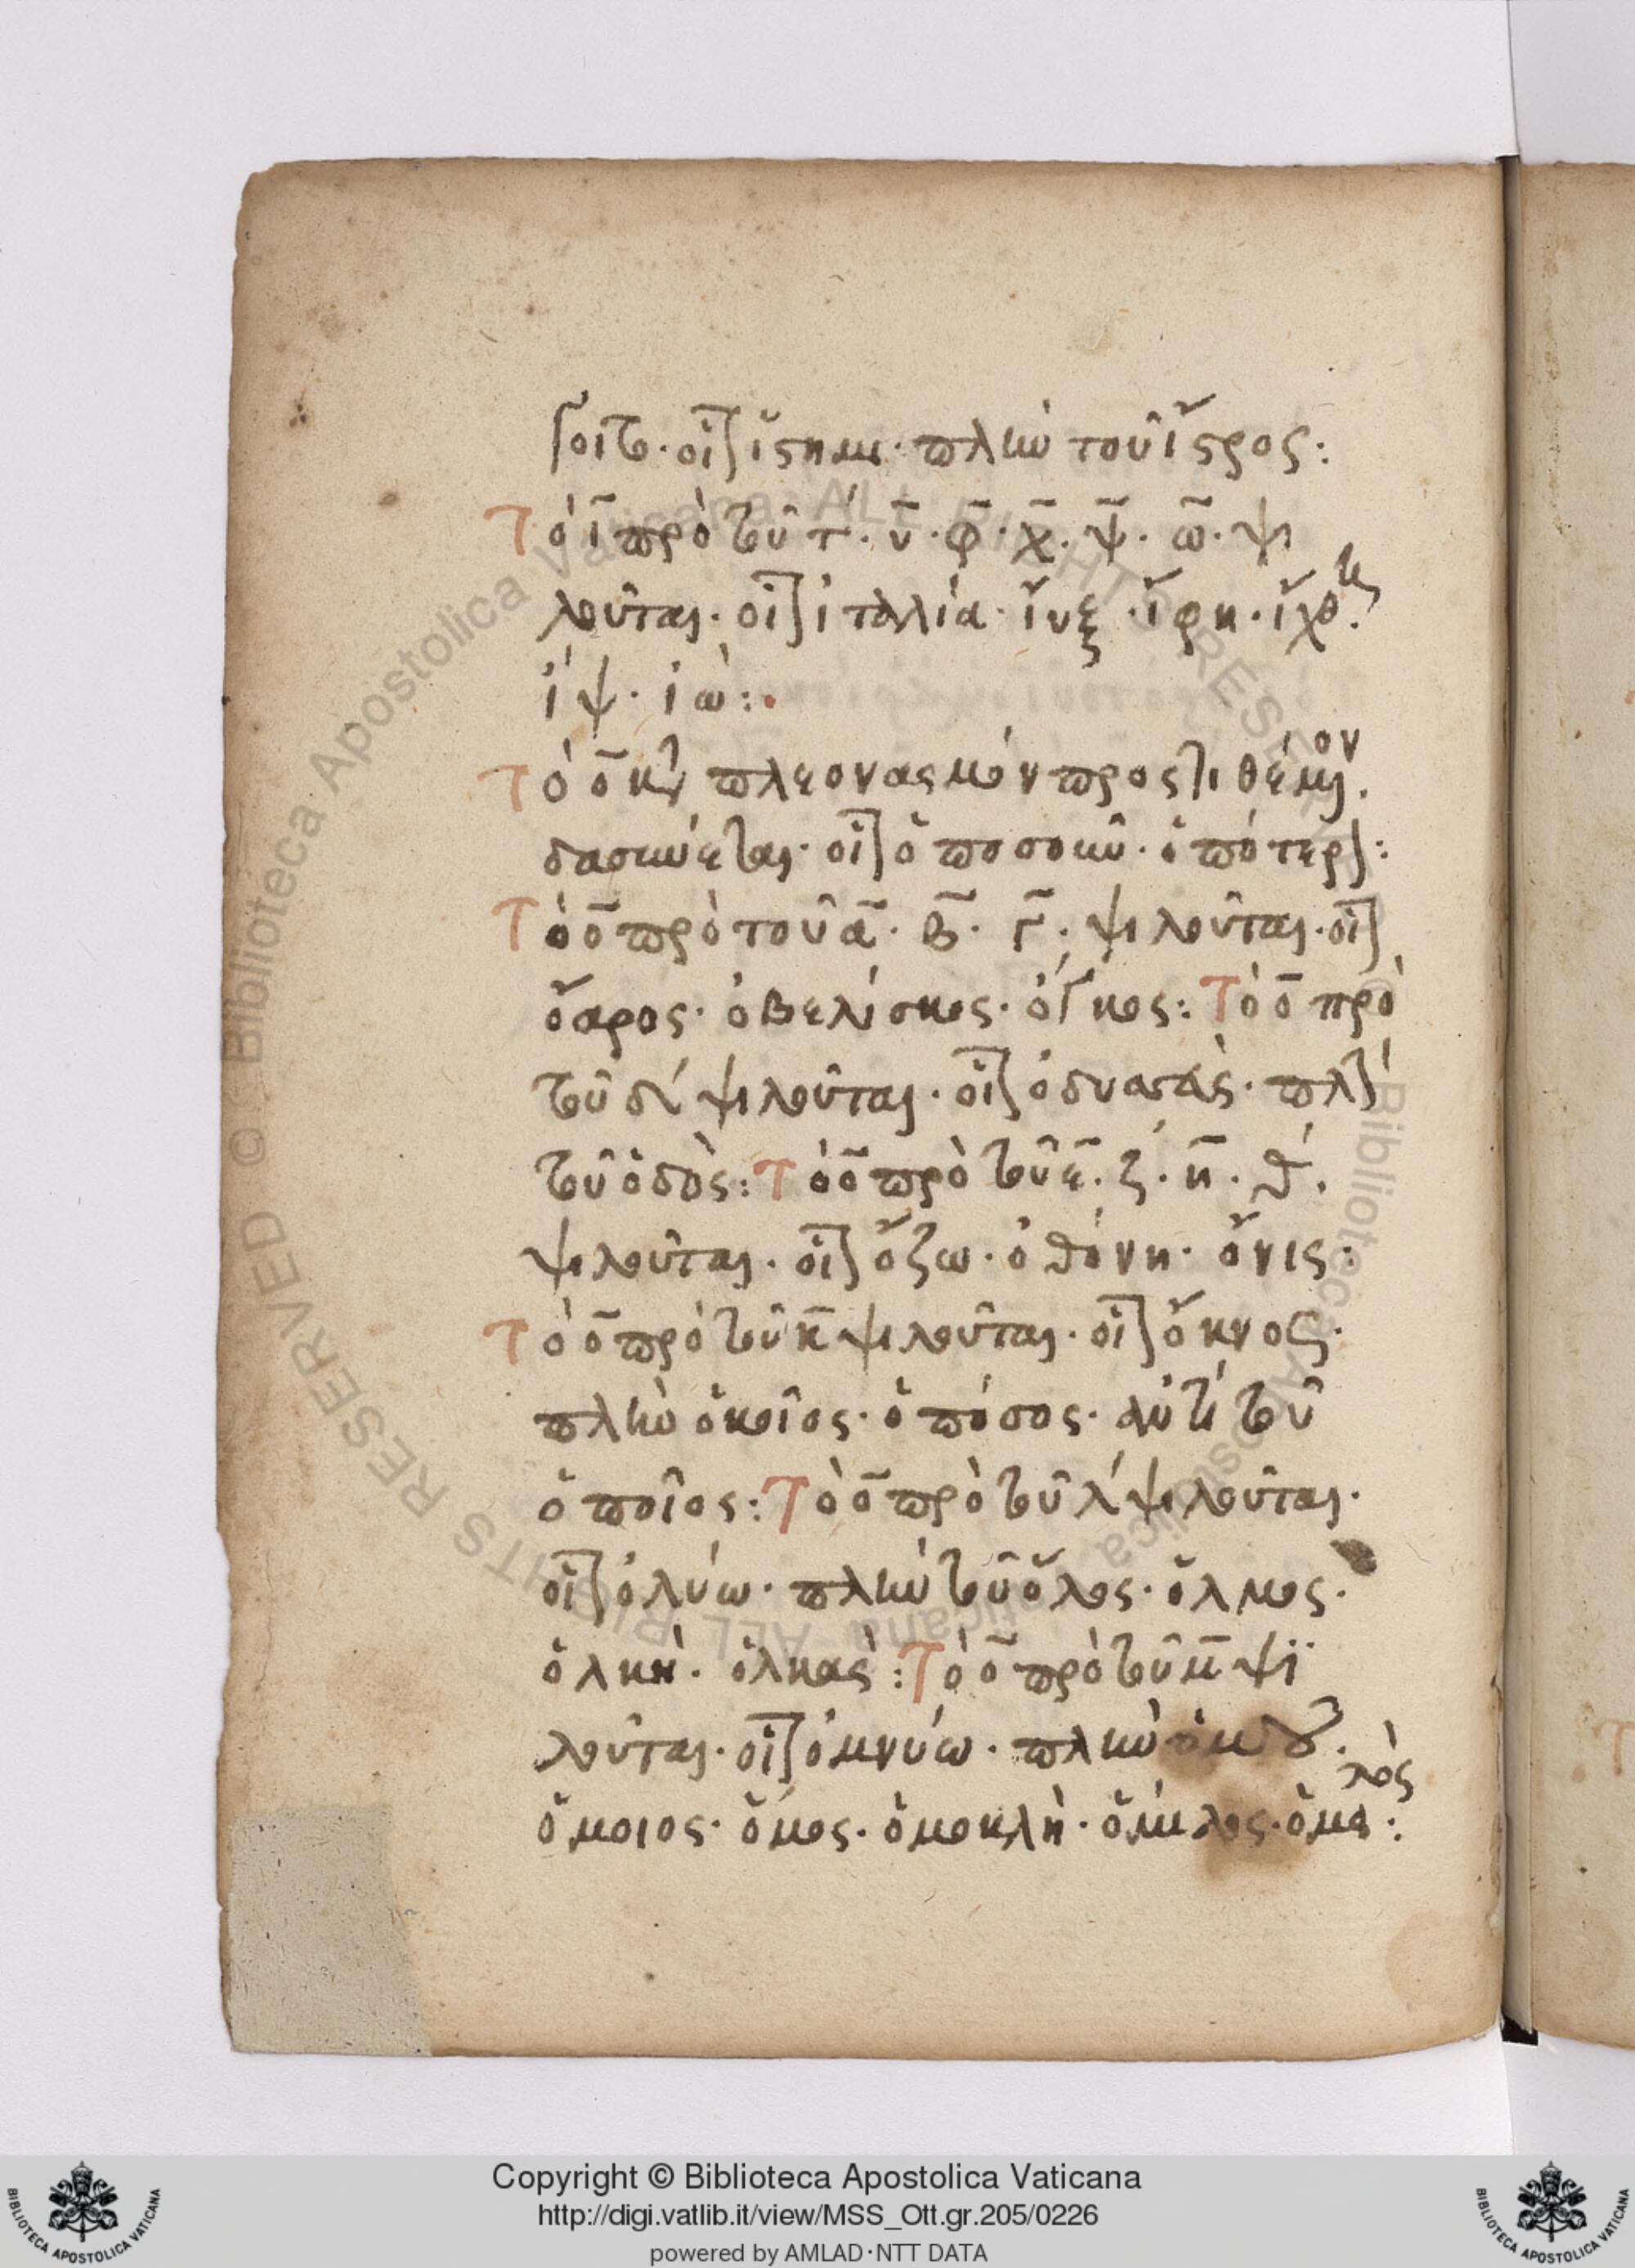 γοιτο· οἷον ἵστημι· πλὴν τοῦ ἴστρος:
Τὸ ῑ πρὸ τοῦ τ̄· ῡ· φ̄· χ̄· ψ̄· ω̄· ψι
λοῦται· οἷον ἰταλία· ἴυξ· ἴφη· ἰχθῦς·
ἴψ· ἰώ:
Τὸ ο̄ κατὰ πλεονασμὸν προστιθέμενον·
δασύνεται· οἷον ὁποσοῦν· ὁπότερον:
Τὸ ο̄ πρὸ τοῦ ᾱ· β̄· γ̄· ψιλοῦται· οἷον
ὄαρος· ὀβελίσκος· ὄγκος: Τὸ ο̄ πρὸ
τοῦ δ̄ ψιλοῦται· οἷον ὀδυσσεὺς· πλὴν
τοῦ ὁδὸς: Τὸ ο̄ πρὸ τοῦ ε̄· ζ· η̄· θ·
ψιλοῦται· οἷον ὄζω· ὀθόνη· ὄνις:
Τὸ ο̄ πρὸ τοῦ κ̄ ψιλοῦται· οἷον ὄκνος·
πλὴν ὁκοῖος· ὁπόσος· ἀντὶ τοῦ
ὁποῖος: Τὸ ο̄ πρὸ τοῦ λ ψιλοῦται·
οἷον ὀλύω· πλὴν τοῦ ὅλος· ὅλμος·
ὁλκὴ· ὁλκὰς: Τὸ ο̄ πρὸ τοῦ μ̄ ψϊ
λοῦται· οἷον ὀμνύω· πλὴν ὁμοῦ·
ὅμοιος· ὅμος· ὁμοκλὴ· ὅμιλος· ὁμαλὸς:
Copyright © Biblioteca Apostolica Vaticana
http://digi.vatlib.it/view/MSS_Ott.gr.205/0226
powered by AMLAD·NTT DATA